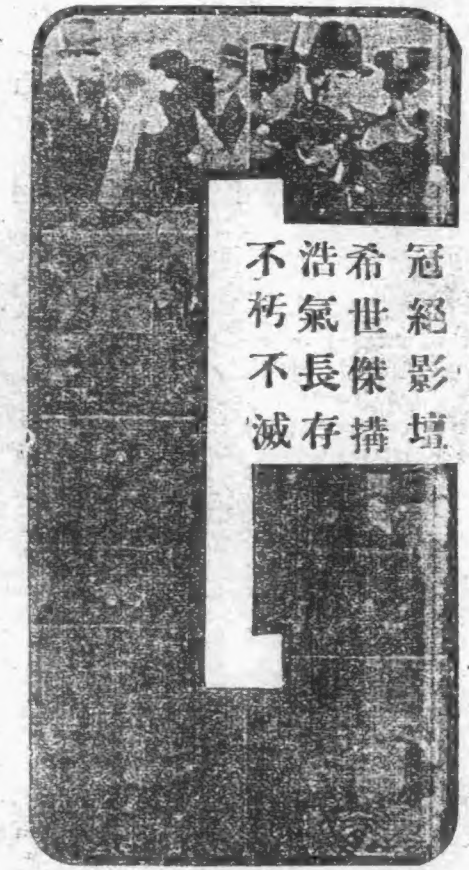 冠絕影壇
希世傑搆
浩氣長存
不朽不滅